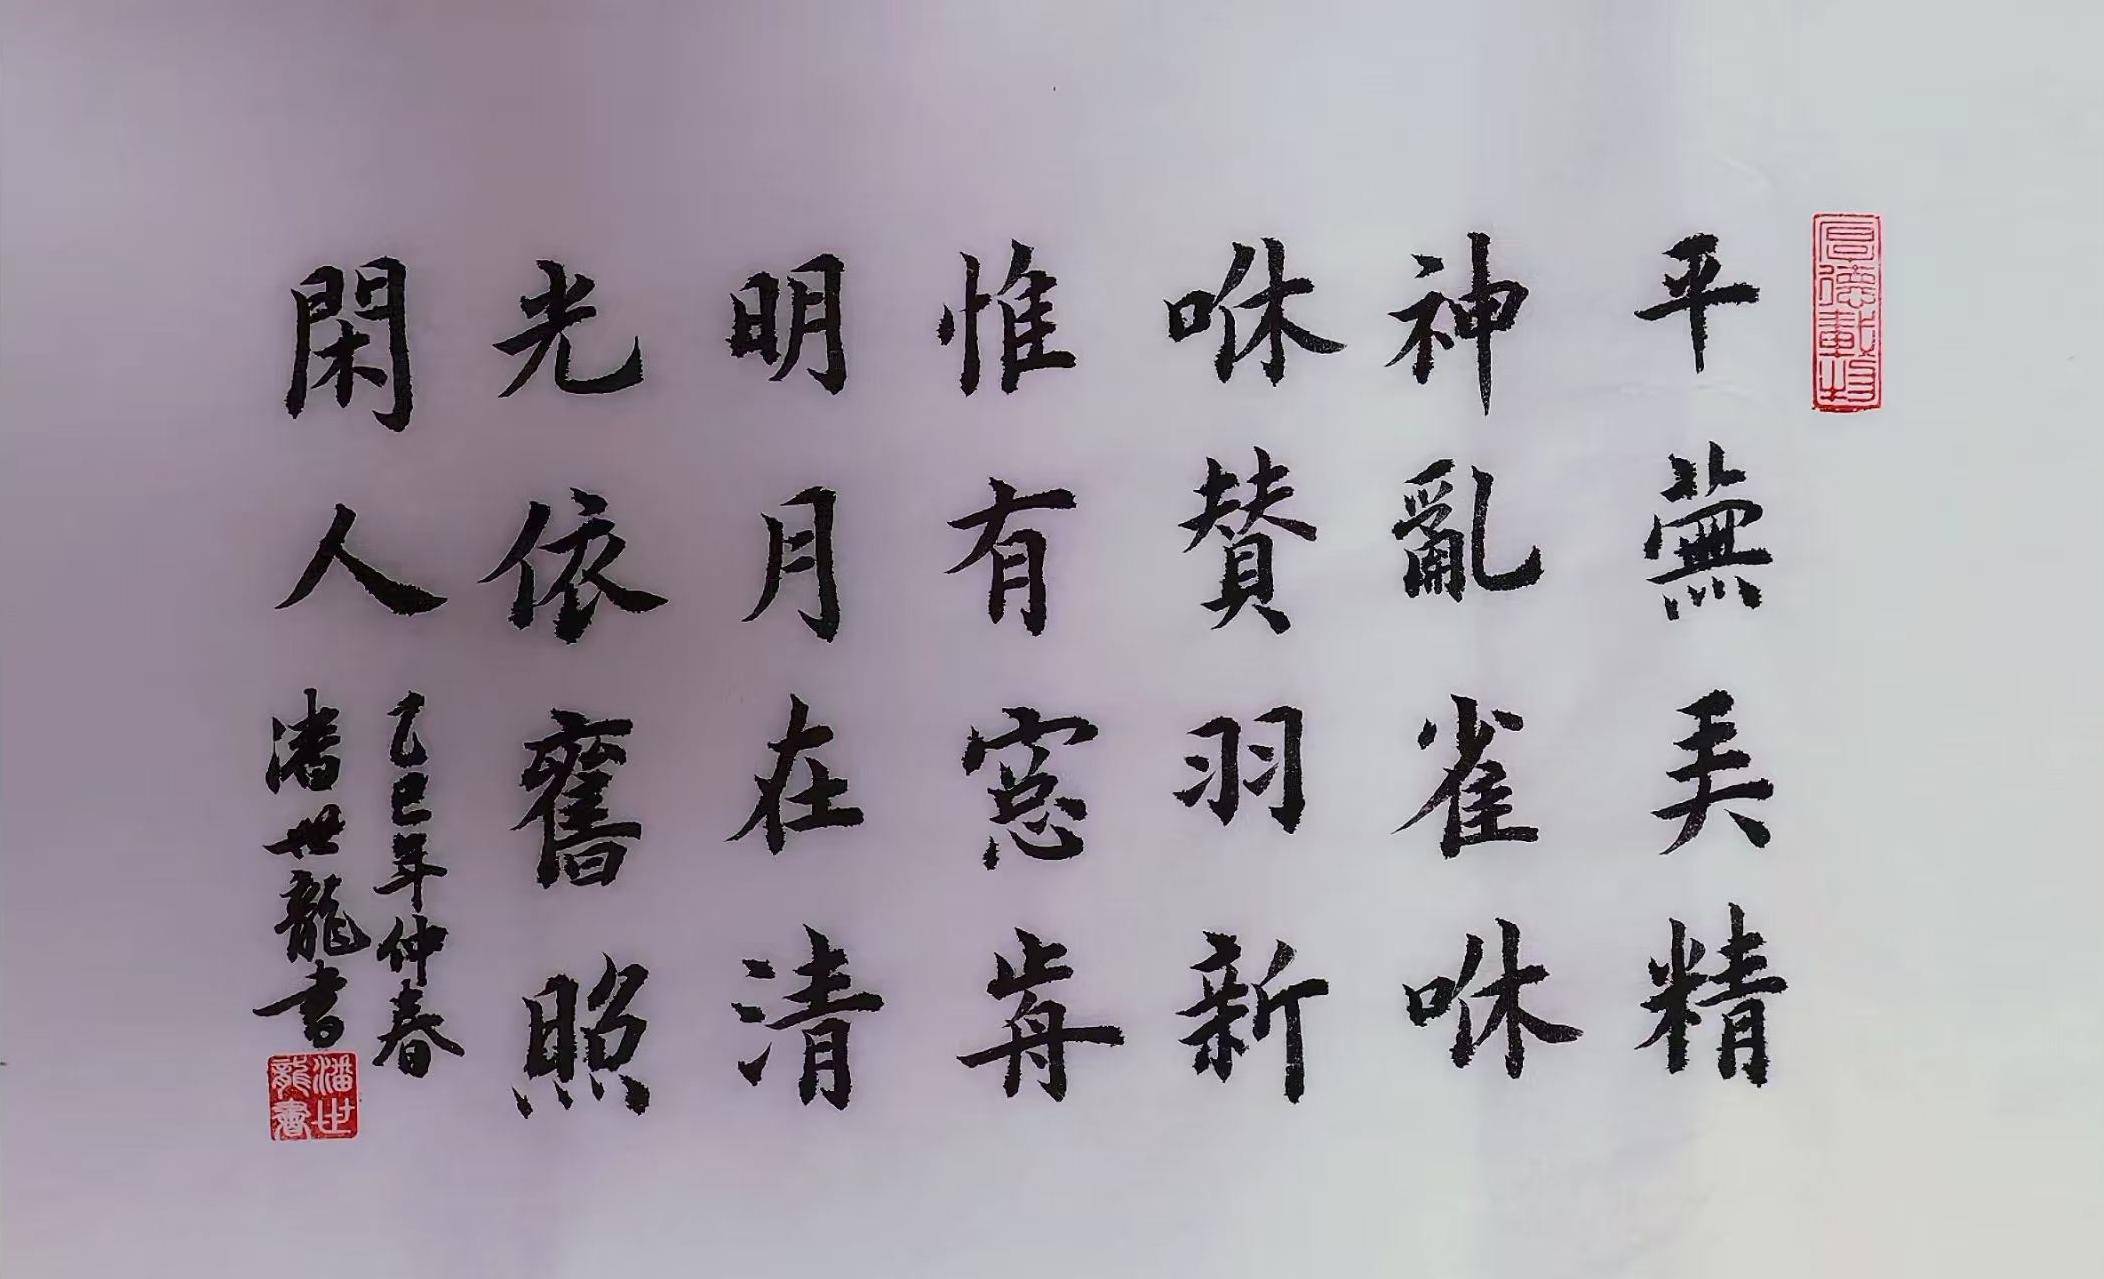 厚德載物
平蕪精
神亂雀咻
咻賛羽新
惟有窓歬
明月在清
光依舊照
閑人
乙巳年仲春
潘世龍書
潘世龍書